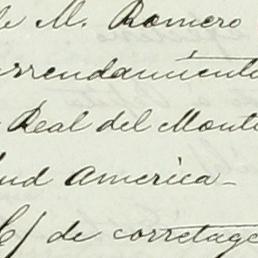 de M. Romero
arrendamiento
Real del Monte
Sud America
C/ de corretage